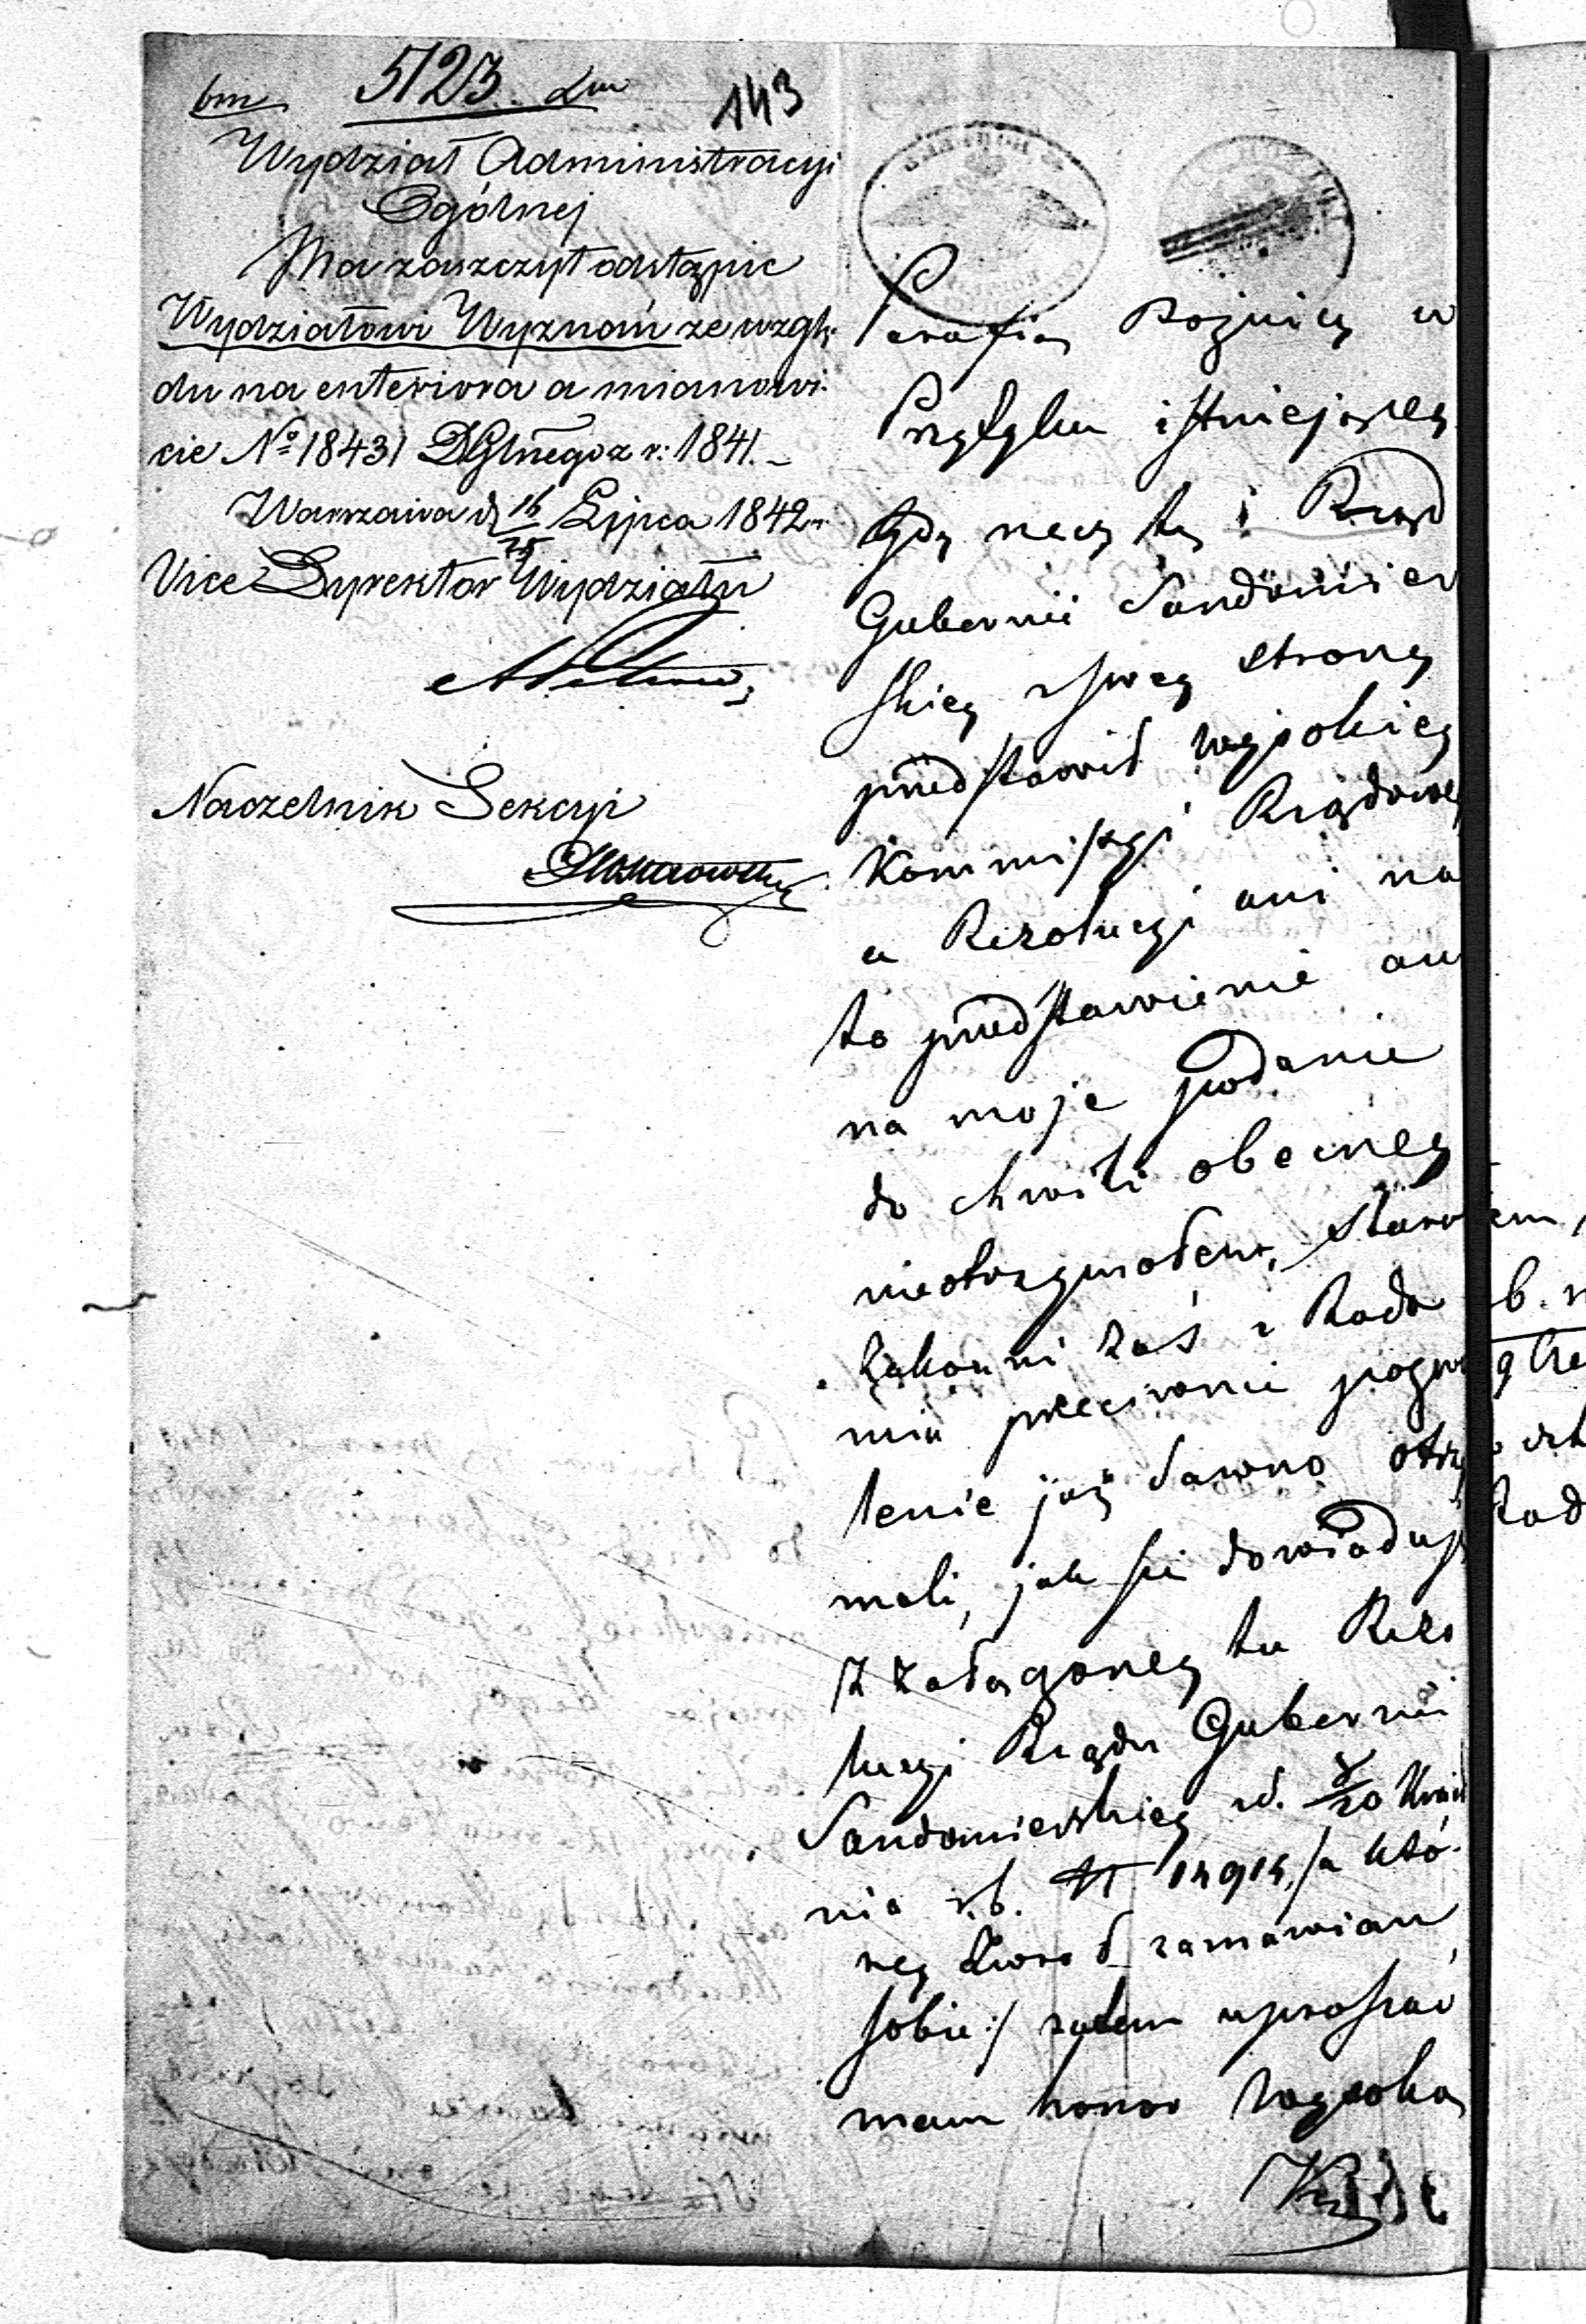 5123.
143
Wydział Administracyi
Ogólney
Ma zaszczyt odstąpić
Wydziałowi Wyznań ze wzglę-
du na enteriora a mianowi-
cie No 18431 DGlnego z r: 1841. –
Warszawa d 16/28 Lipca 1842 r.
Vice Dyrektor Wydziału
Naczelnik Sekcyi
Parafią Bożnicę w
Przytyku istniejącey
Gdy rzeczy tey i Rząd
Gubernii Sandomier
skiey z swey strony
przedstawił wysokiey
Kommissyi Rządowey
a Rezolucyi ani na
to przedstawienie an
na moje podanie
do chwili obecney
nieotrzymałem, Staro
zakonni zaś z Rado
mia przeciwnie pozwo
lenie już dawno otrzy
mali, jak się dowiaduję
z załączoney tu Rezo
lucyi Rządu Gubernii
Sandomierskiey z d. 8/20 Kwie
nia r.b. N 14914, /: a któ-
rey zwrot zamawiam
sobie :/ zatem upraszać
mam honor Wysoką